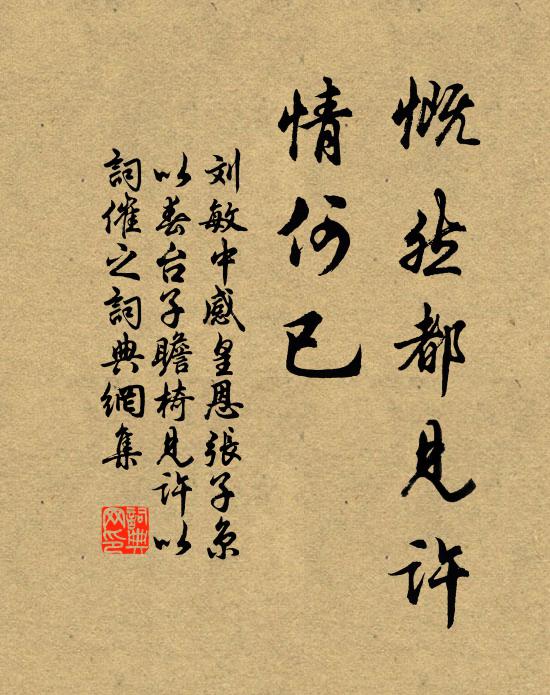 慨然都見许
情何已
刘敏中感皇恩張子京
以春台子瞻椅見许以
詞催之詞典網集
詞典网印